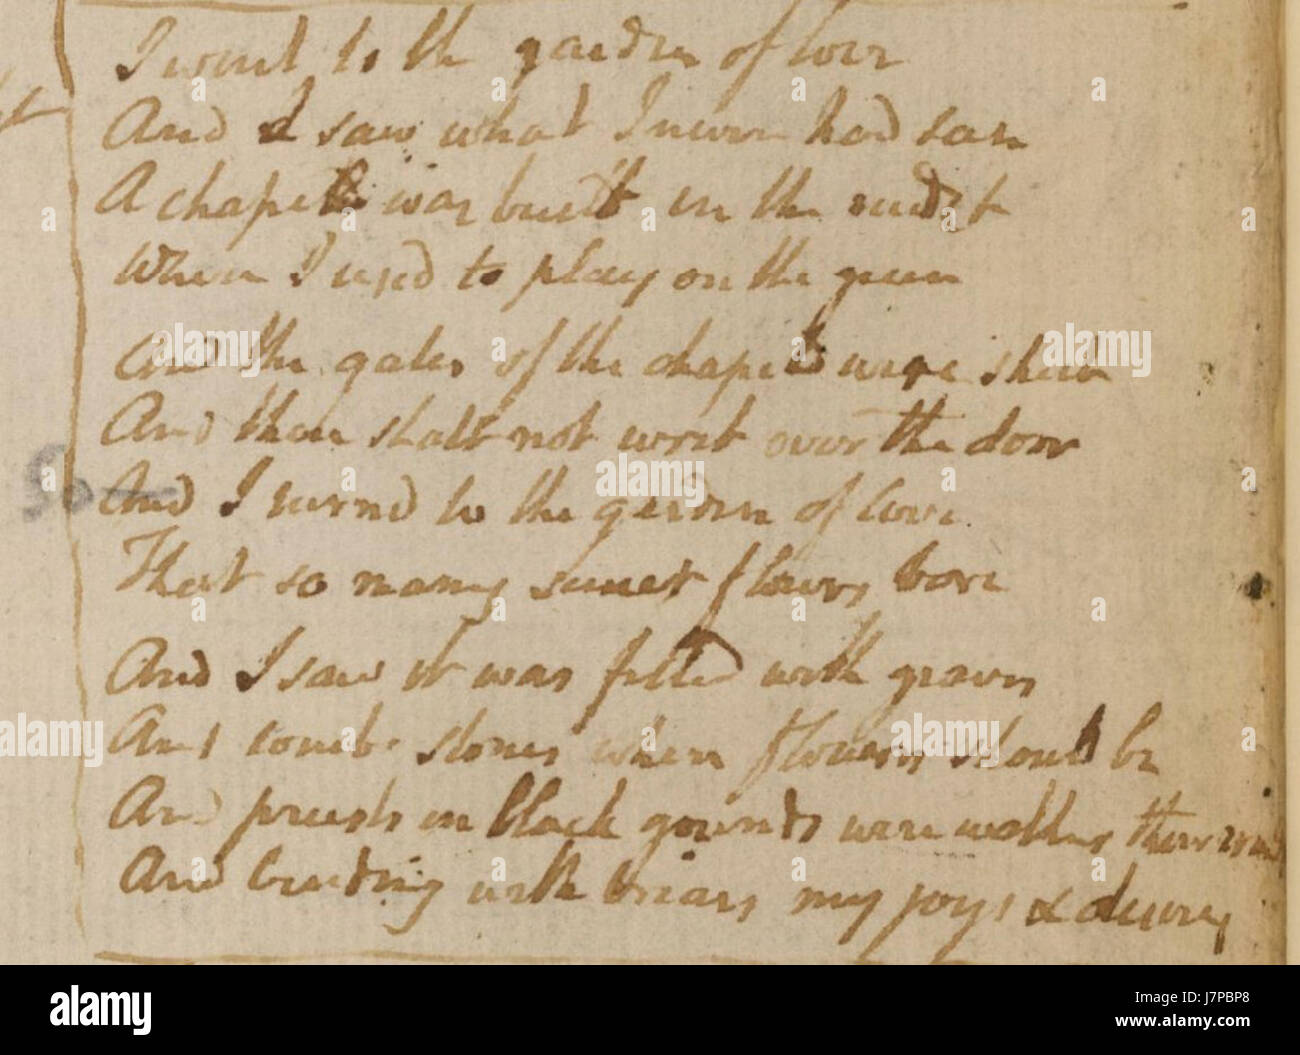 I went to the garden of love
And I saw what I never had seen
A chapel was built in the midst
Where I used to play on the green
And the gates of the chapel were shut
And thou shalt not writ over the door
So And I turnd to the garden of love
That so many sweet flowers bore
And I saw it was filled with graves
And tomb-stones where flowers should be
And priests in black gounds were walking their rounds
And binding with briars my joys & desires
alamy
Image ID: J7PBP8
www.alamy.com